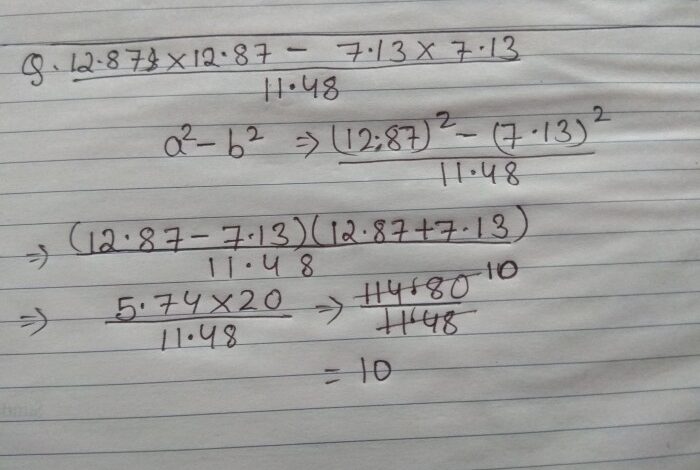 9. 12.87 × 12.87 - 7.13 × 7.13
11.48
a² - b² ⇒ (12.87)² - (7.13)²
11.48
⇒ (12.87 - 7.13)(12.87 + 7.13)
11.48
⇒ 5.74 × 20 ⇒ 114.80 10
11.48 11.48
= 10